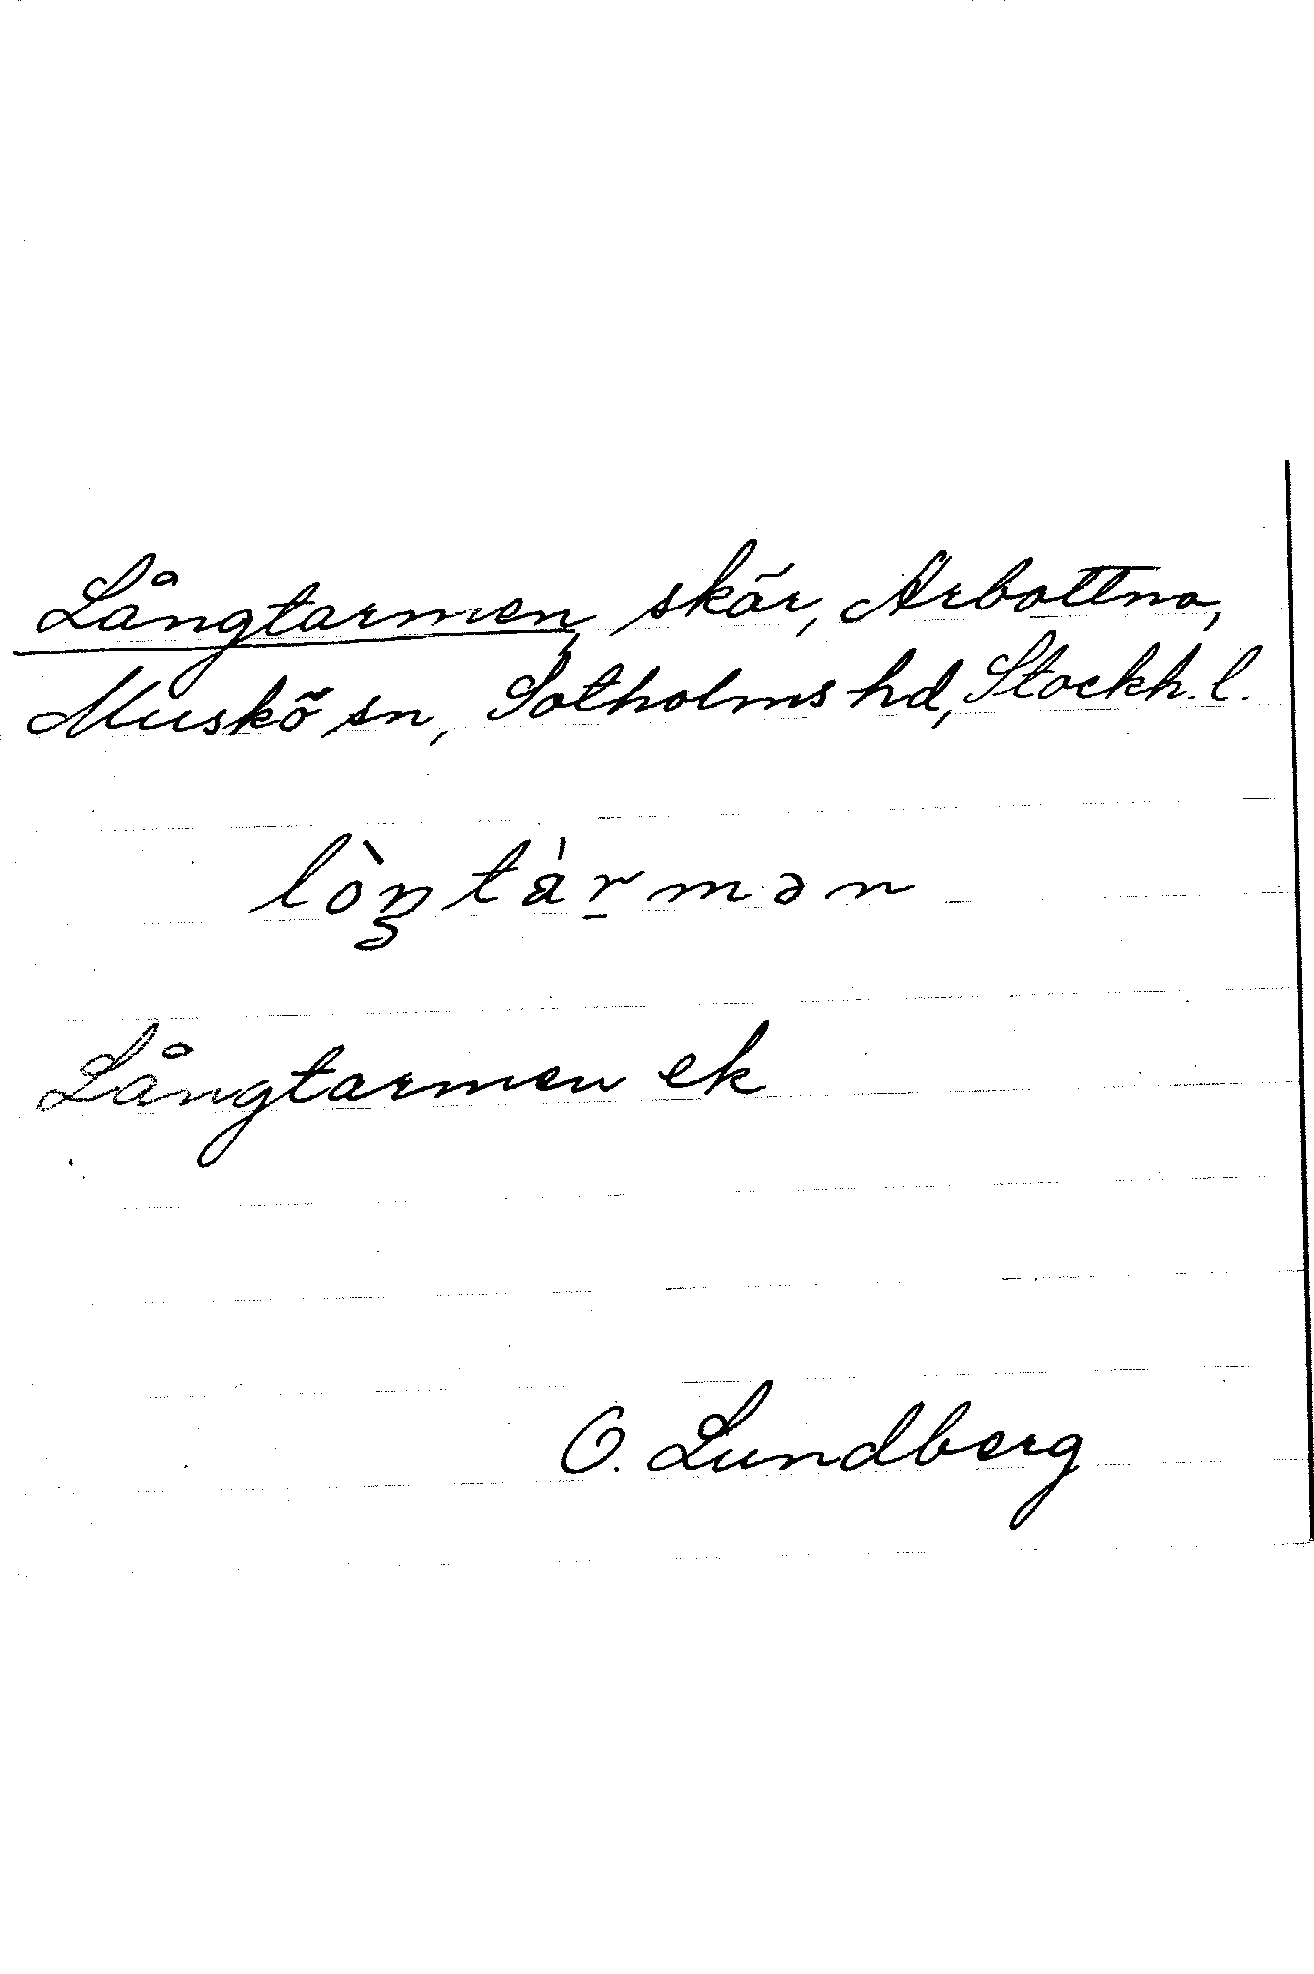 Långtarmen, skär, Arbottna,
Muskö sn, Sotholms hd, Stockh. l.
lòŋtár̠mən
Långtarmen ek
O. Lundberg